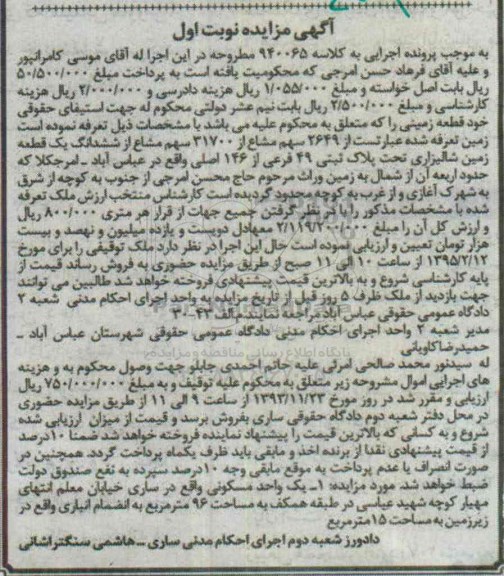 آگهی مزایده نوبت اول
به موجب پرونده اجرایی به کلاسه ۹۴۰۰۶۵ مطروحه در این اجرا له آقای موسی کامرانپور
و علیه آقای فرهاد حسن امرجی که محکومیت یافته است به پرداخت مبلغ ۵۰/۵۰۰/۰۰۰
ریال بابت اصل خواسته و مبلغ ۱/۰۵۵/۰۰۰ ریال هزینه دادرسی و ۲/۰۰۰/۰۰۰ ریال هزینه
کارشناسی و مبلغ ۲/۵۰۰/۰۰۰ ریال بابت نیم عشر دولتی محکوم له جهت استیفای حقوقی
خود قطعه زمینی را که متعلق به محکوم علیه می باشد با مشخصات ذیل تعرفه نموده است
زمین تعرفه شده عبارتست از ۲۶۴۹ سهم مشاع از ۳۱۷۰۰ سهم مشاع از ششدانگ یک قطعه
زمین شالیزاری تحت پلاک ثبتی ۴۹ فرعی از ۱۴۶ اصلی واقع در عباس آباد ـ امرجکلا که
حدود اربعه آن از شمال به زمین وراث مرحوم حاج محسن امرجی از جنوب به کوچه از شرق
به شهرک آغازی و از غرب به کوچه محدود گردیده است کارشناس منتخب ارزش ملک تعرفه
شده با مشخصات مذکور را با در نظر گرفتن جمیع جهات از قرار هر متری ۸۰۰/۰۰۰ ریال
و ارزش کل آن را مبلغ ۲/۱۱۹/۲۰۰/۰۰۰ معهادل دویست و یازده میلیون و نهصد و بیست
هزار تومان تعیین و ارزیابی نموده است حال این اجرا در نظر دارد ملک توقیفی را برای مورخ
۱۳۹۵/۲/۱۲ از ساعت ۱۰ الی ۱۱ صبح از طریق مزایده حضوری به فروش رساند قیمت از
پایه کارشناسی شروع و به بالاترین قیمت پیشنهادی فروخته خواهد شد طالبین می توانند
جهت بازدید از ملک ظرف ۵ روز قبل از تاریخ مزایده به واحد اجرای احکام مدنی شعبه ۲
دادگاه عمومی حقوقی عباس آباد مراجعه نمایند م الف ۴۳ـ۳۰
مدیر شعبه ۲ واحد اجرای احکام مدنی دادگاه عمومی حقوقی شهرستان عباس آباد ـ
حمیدرضا کاویانی
پایگاه اطلاع رسانی مناقصه و مزایده
له سیدنور محمد صالحی امرئی علیه حاتم احمدی جابلو جهت وصول محکوم به و هزینه
های اجرایی اموال مشروحه زیر متعلق به محکوم علیه توقیف و به مبلغ ۷۵۰/۰۰۰/۰۰۰ ریال
ارزیابی و مقرر شد در روز مورخ ۱۳۹۳/۱۱/۲۳ از ساعت ۹ الی ۱۱ از طریق مزایده حضوری
در محل دفتر شعبه دوم دادگاه حقوقی ساری بفروش برسد و قیمت از میزان ارزیابی شده
شروع و به کسانی که بالاترین قیمت را پیشنهاد نماینده فروخته خواهد شد ضمنا ۱۰درصد
از قیمت پیشنهادی نقدا از برنده اخذ و مابقی باید ظرف یکماه پرداخت گردد. همچنین در
صورت انصراف یا عدم پرداخت به موقع مابقی وجه ۱۰درصد سپرده به نفع صندوق دولت
ضبط خواهد شد. مورد مزایده: ۱ـ یک واحد مسکونی واقع در ساری خیابان معلم انتهای
مهیار کوچه شهید عباسی در طبقه همکف به مساحت ۹۶ مترمربع به انضمام انباری واقع در
زیرزمین به مساحت ۱۵مترمربع
دادورز شعبه دوم اجرای احکام مدنی ساری ـ هاشمی سنگتراشانی